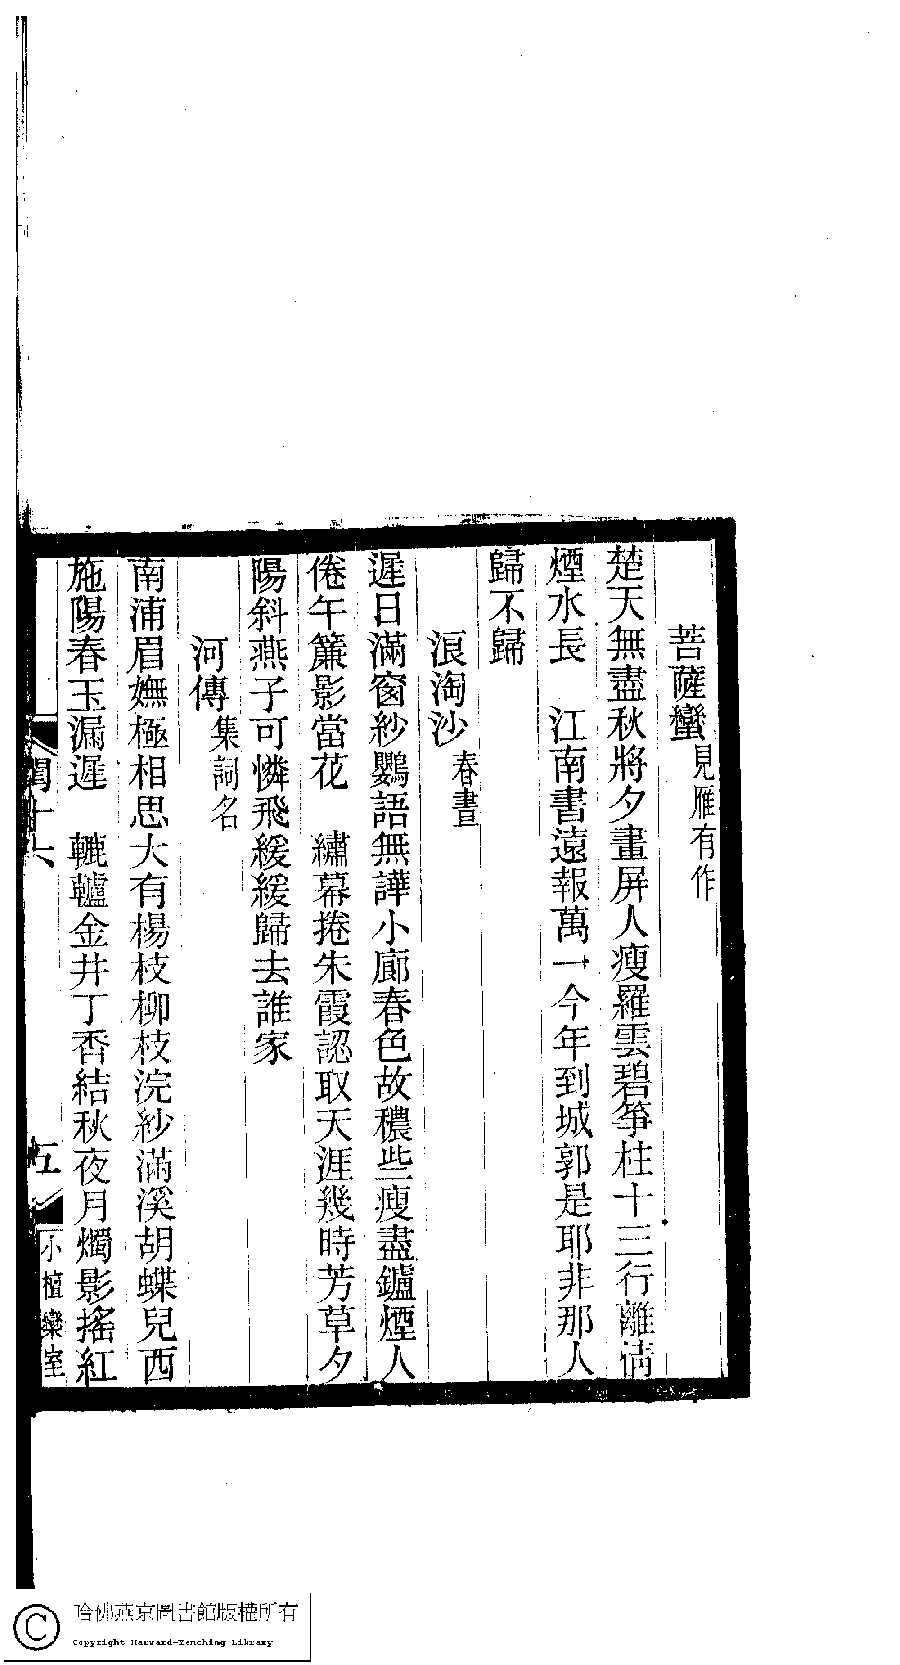 菩薩蠻見雁有作
楚天無盡秋將夕畫屏人瘦羅雲碧箏柱十三行離情
煙水長　江南書遠報萬一今年到城郭是耶非那人
歸不歸
浪淘沙春晝
遲日滿窗紗鸚語無譁小廊春色故穠些瘦盡鑪煙人
倦午簾影當花　繡幕捲朱霞認取天涯幾時芳草夕
陽斜燕子可憐飛緩緩歸去誰家
河傳集詞名
南浦眉嫵極相思大有楊枝柳枝浣紗滿溪胡蝶兒西
施陽春玉漏遲　轆轤金井丁香結秋夜月燭影搖紅
閨十六
五
小檀欒室
哈佛燕京圖書館版權所有
Copyright Harvard-Yenching Library